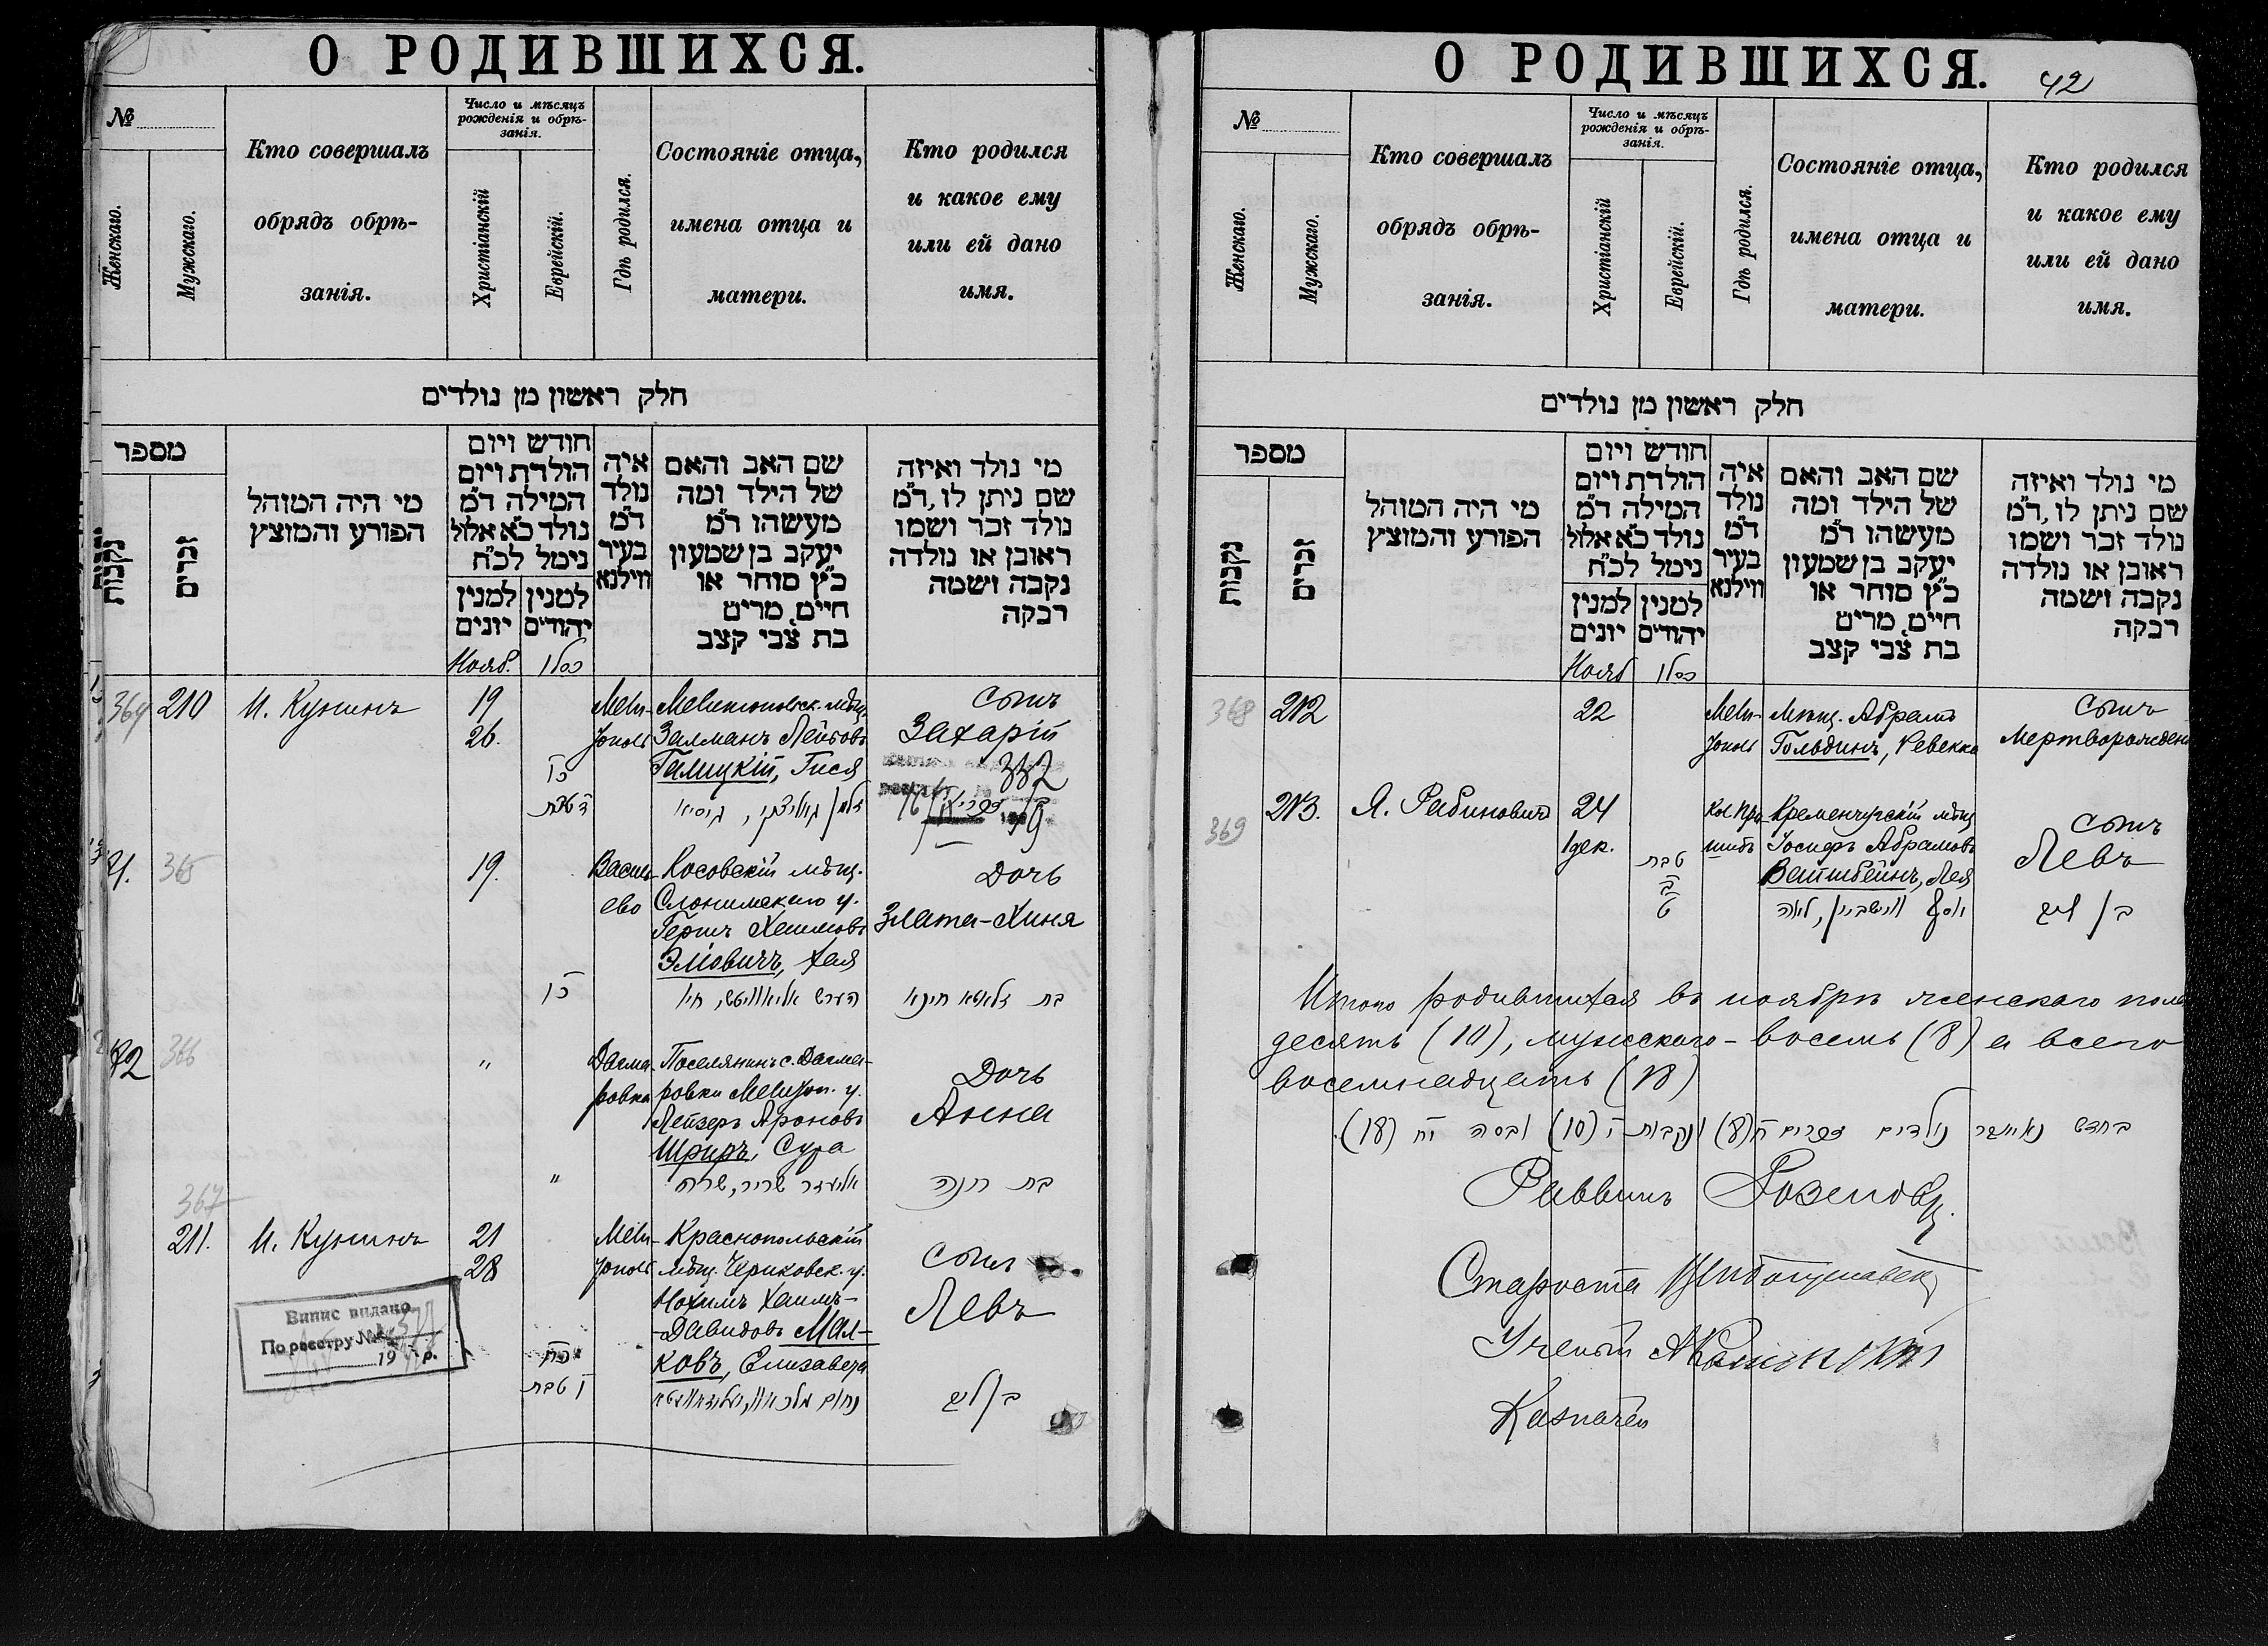 О РОДИВШИХСЯ.
№
Женскаго.
Мужскаго.
Кто совершалъ
обрядъ обрѣ-
занія.
Число и мѣсяцъ
рожденія и обрѣ-
занія.
Христіанскій
Еврейскій.
Гдѣ родился.
Состояніе отца,
имена отца и
матери.
Кто родился
и какое ему
или ей дано
имя.
חלק ראשון מן נולדים
מספר
נקבות
זכרים
מי היה המוהל
הפורע והמוצץ
חודש ויום
הולדת ויום
המילה ד״מ
נולד כ״א אלול
נימל לכ״ח
למנין
יונים
למנין
יהודים
איה
נולד
ד״מ
בעיר
ווילנא
שם האב והאם
של הילד ומה
מעשהו ד״מ
יעקב בן שמעון
כ״ץ סוחר או
חיים, מרים
בת צבי קצב
מי נולד ואיזה
שם ניתן לו, ד״מ
נולד זכר ושמו
ראובן או נולדה
נקבה ושמה
רבקה
Нояб. כסלו
364 210 И. Кунинъ 19 Мели- Мелитопольск. мѣщ. Сынъ
26. тополь Залманъ Лейбовъ Захарій
כו Галицкій, Гися 332
ד טבת זלמן גאליצקי, גיסיא
71. 365 19. Василь- Косовскій мѣщ. Дочь
ево Слонимскаго у. Злата-Хиня
Гершъ Хаимовъ
Эліовичъ, Хая
כו הערש אליאוויטש, חיה בת זלאטא חינא
72 366 " Дагма- Поселянинъ с. Дагма- Дочь
ровка ровки Мелитоп. у. Анна
Лейзеръ Ароновъ
Шриръ, Сура
" אליעזר שריר, שרה בת חנה
367
211. И. Кунинъ 21 Мели- Краснопольскій Сынъ
28 тополь мѣщ. Чериковск. у. Левъ
Нохимъ Хаимъ-
-Давидовъ Мал-
כח ковъ, Елизавета
ו טבת נחום בן לייב
Випис видано
По реестру №
19 р.
О РОДИВШИХСЯ. 42
№
Женскаго.
Мужскаго.
Кто совершалъ
обрядъ обрѣ-
занія.
Число и мѣсяцъ
рожденія и обрѣ-
занія.
Христіанскій
Еврейскій.
Гдѣ родился.
Состояніе отца,
имена отца и
матери.
Кто родился
и какое ему
или ей дано
имя.
חלק ראשון מן נולדים
מספר
נקבות
זכרים
מי היה המוהל
הפורע והמוצץ
חודש ויום
הולדת ויום
המילה ד״מ
נולד כ״א אלול
נימל לכ״ח
למנין
יונים
למנין
יהודים
איה
נולד
ד״מ
בעיר
ווילנא
שם האב והאם
של הילד ומה
מעשהו ד״מ
יעקב בן שמעון
כ״ץ סוחר או
חיים, מרים
בת צבי קצב
מי נולד ואיזה
שם ניתן לו, ד״מ
נולד זכר ושמו
ראובן או נולדה
נקבה ושמה
רבקה
Нояб כסלו
368 212 22 Мели- Мѣщ. Абрамъ Сынъ
тополь Гольдинъ, Ревекка Мертворожден
369 213. Я. Рабиновичъ 24 Кременчугскій мѣщ Сынъ
1 дек. טבת Іосифъ Абрамовъ Левъ
ב Вайшбейнъ, Лея
ט יוסף ווישביין, לאה בן לייב
Итого родившихся въ ноябрѣ женскаго пола
десять (10), мужскаго - восемь (8) а всего
восемнадцать (18)
בחדש נאיאבר נולדים זכרים ח (8) ונקבות י (10) ובסה יח (18).
Раввинъ
Староста
Ученый
Казначей